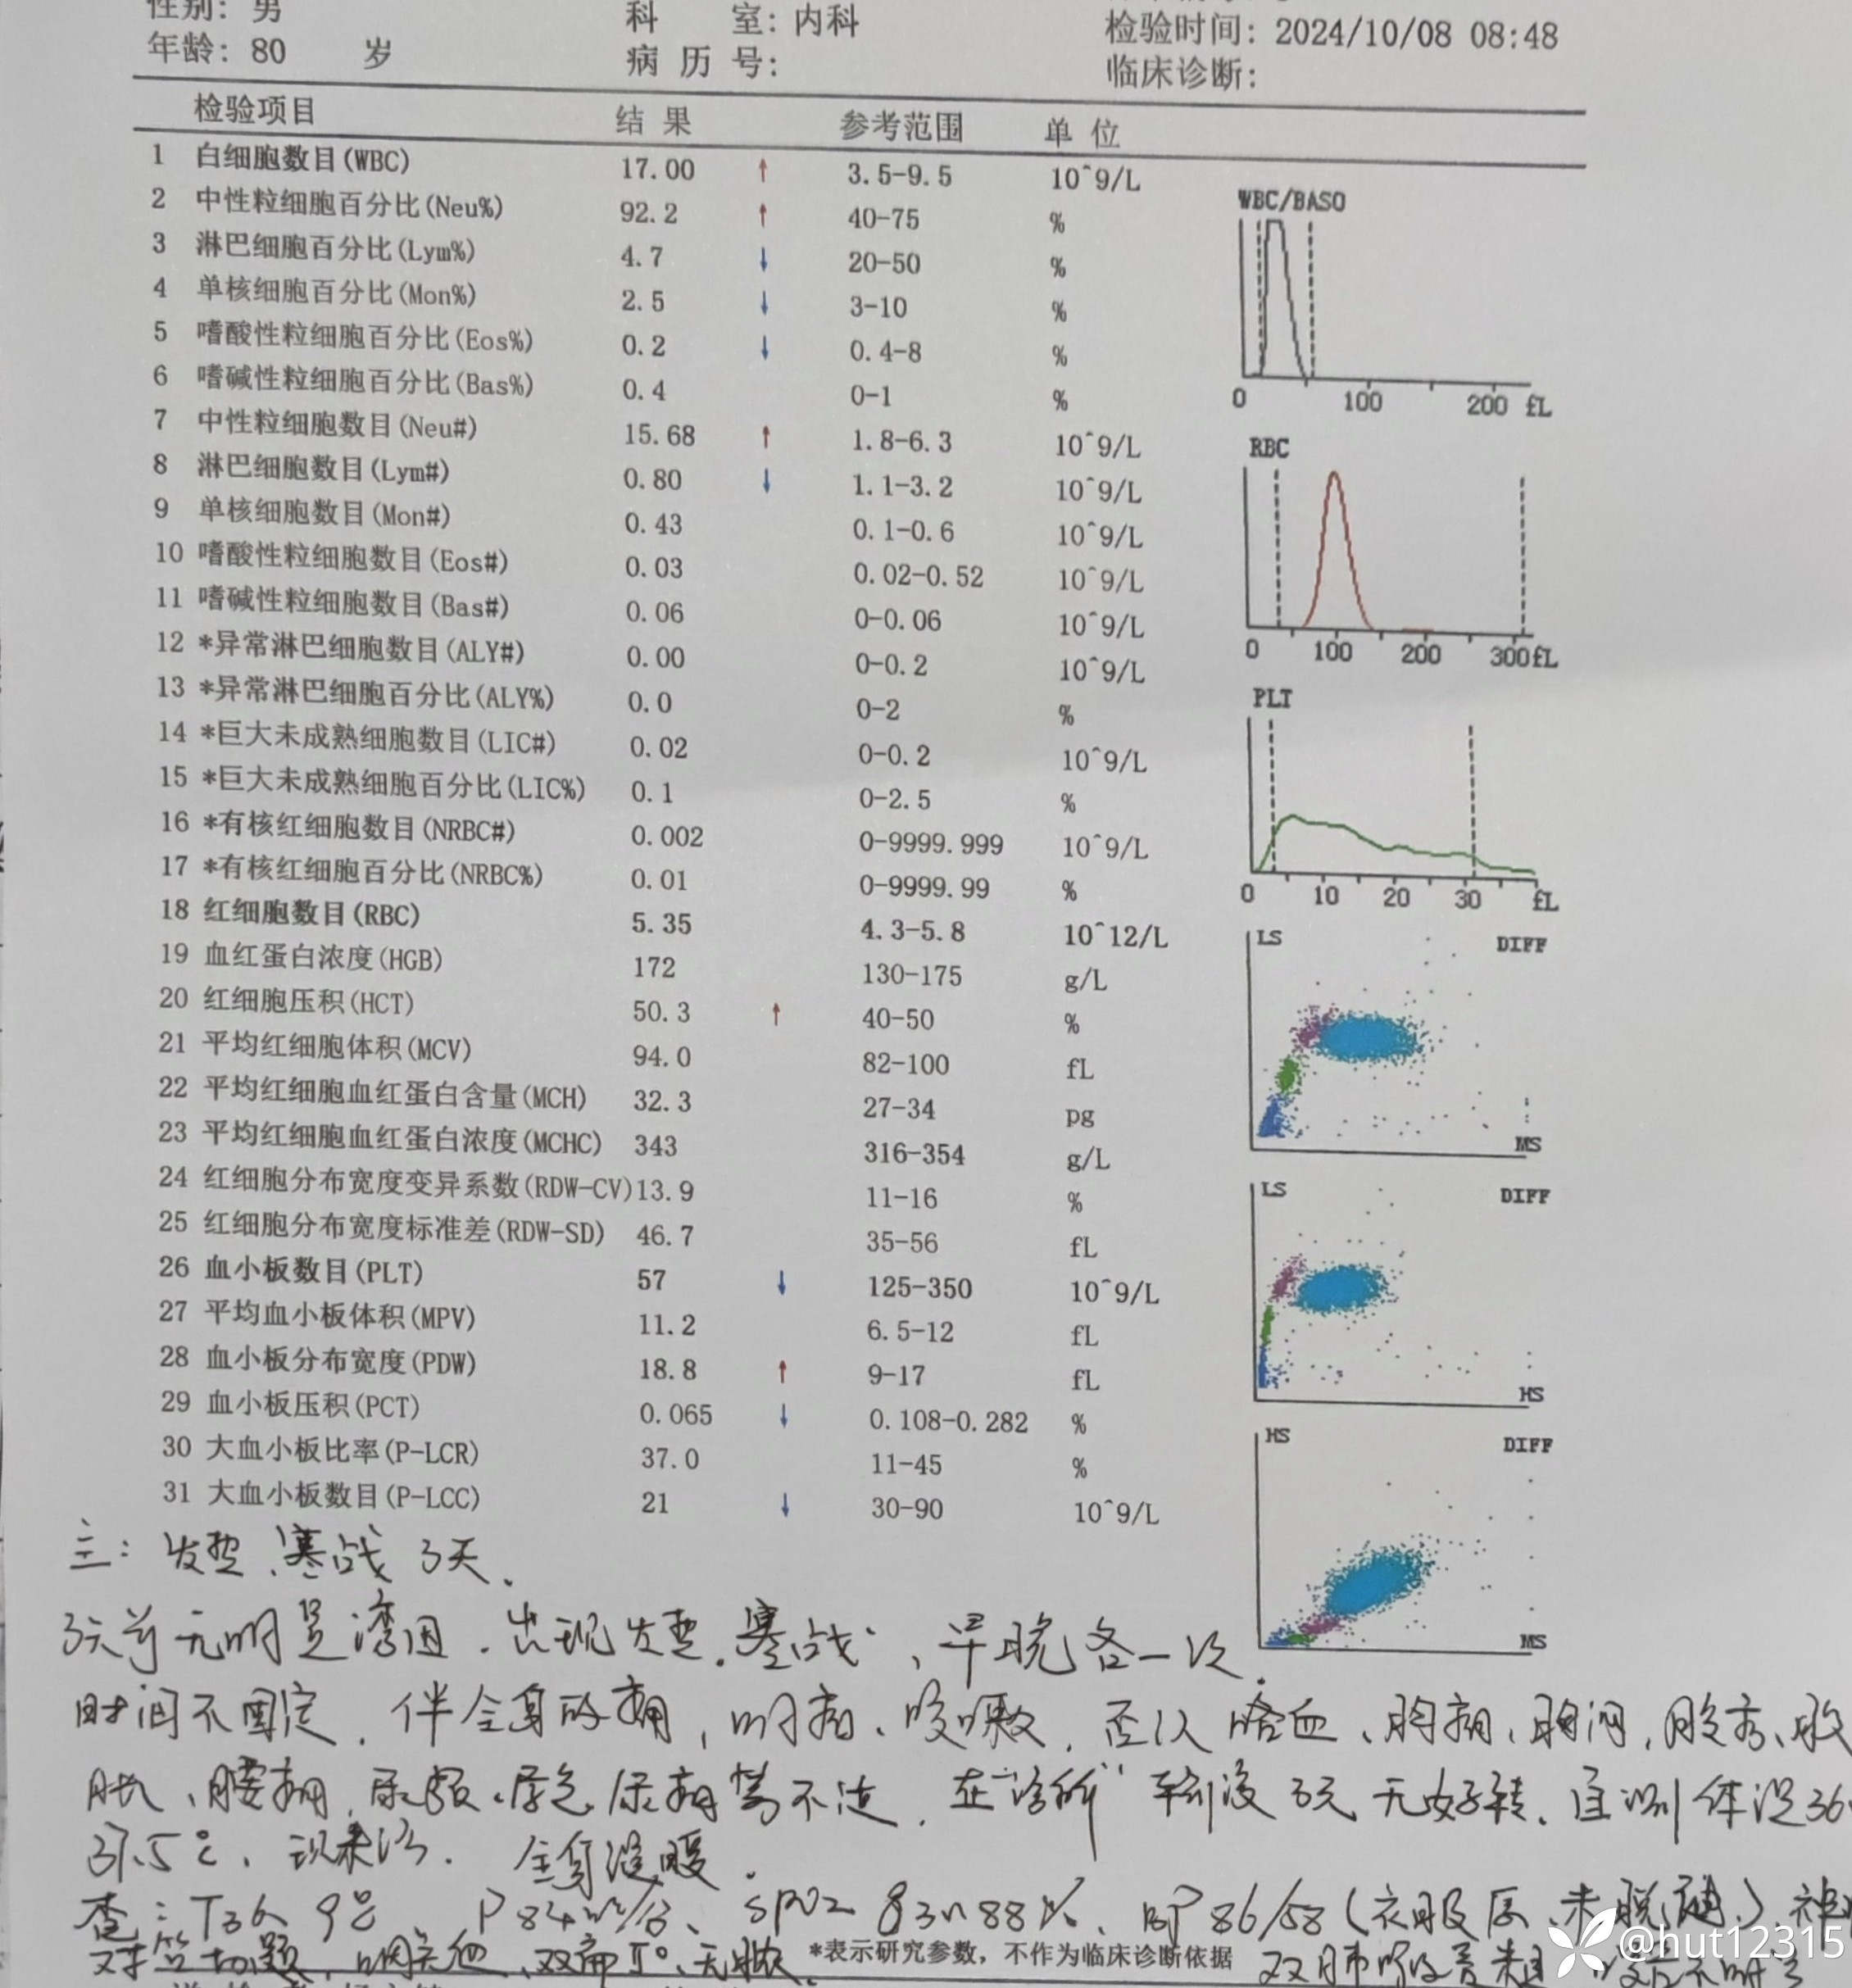 性别: 男 科 室: 内科
年龄: 80 岁 病 历 号: 检验时间: 2024/10/08 08:48
临床诊断:
检验项目 结 果 参考范围 单 位
1 白细胞数目(WBC) 17.00 ↑ 3.5-9.5 10^9/L
2 中性粒细胞百分比(Neu%) 92.2 ↑ 40-75 %
3 淋巴细胞百分比(Lym%) 4.7 ↓ 20-50 %
4 单核细胞百分比(Mon%) 2.5 ↓ 3-10 %
5 嗜酸性粒细胞百分比(Eos%) 0.2 ↓ 0.4-8 %
6 嗜碱性粒细胞百分比(Bas%) 0.4 0-1 %
7 中性粒细胞数目(Neu#) 15.68 ↑ 1.8-6.3 10^9/L
8 淋巴细胞数目(Lym#) 0.80 ↓ 1.1-3.2 10^9/L
9 单核细胞数目(Mon#) 0.43 0.1-0.6 10^9/L
10 嗜酸性粒细胞数目(Eos#) 0.03 0.02-0.52 10^9/L
11 嗜碱性粒细胞数目(Bas#) 0.06 0-0.06 10^9/L
12 *异常淋巴细胞数目(ALY#) 0.00 0-0.2 10^9/L
13 *异常淋巴细胞百分比(ALY%) 0.0 0-2 %
14 *巨大未成熟细胞数目(LIC#) 0.02 0-0.2 10^9/L
15 *巨大未成熟细胞百分比(LIC%) 0.1 0-2.5 %
16 *有核红细胞数目(NRBC#) 0.002 0-9999.999 10^9/L
17 *有核红细胞百分比(NRBC%) 0.01 0-9999.99 %
18 红细胞数目(RBC) 5.35 4.3-5.8 10^12/L
19 血红蛋白浓度(HGB) 172 130-175 g/L
20 红细胞压积(HCT) 50.3 ↑ 40-50 %
21 平均红细胞体积(MCV) 94.0 82-100 fL
22 平均红细胞血红蛋白含量(MCH) 32.3 27-34 pg
23 平均红细胞血红蛋白浓度(MCHC) 343 316-354 g/L
24 红细胞分布宽度变异系数(RDW-CV) 13.9 11-16 %
25 红细胞分布宽度标准差(RDW-SD) 46.7 35-56 fL
26 血小板数目(PLT) 57 ↓ 125-350 10^9/L
27 平均血小板体积(MPV) 11.2 6.5-12 fL
28 血小板分布宽度(PDW) 18.8 ↑ 9-17 fL
29 血小板压积(PCT) 0.065 ↓ 0.108-0.282 %
30 大血小板比率(P-LCR) 37.0 11-45 %
31 大血小板数目(P-LCC) 21 ↓ 30-90 10^9/L
WBC/BASO
0 100 200 fL
RBC
0 100 200 300 fL
PLT
0 10 20 30 fL
LS DIFF
MS
LS DIFF
HS
HS DIFF
MS
主: 发热、寒战 3天.
3天前无明显诱因.出现发热.寒战,早晚各一次.
时间不固定,伴全身酸痛,咳嗽,否认咯血、胸痛、胸闷,腹
胀、腰痛,尿频、尿急尿痛等不适,在"诊所"输液3天无好转.自测体温36
37.5℃,现来诊. 全身温暖.
查: T36.9℃ P84次/分、SPO2 83~88%、BP86/58(衣服厚,未脱) 神
对答切题, 双扁Ⅱ°,无脓. *表示研究参数,不作为临床诊断依据 双肺呼吸音粗
@hut12315